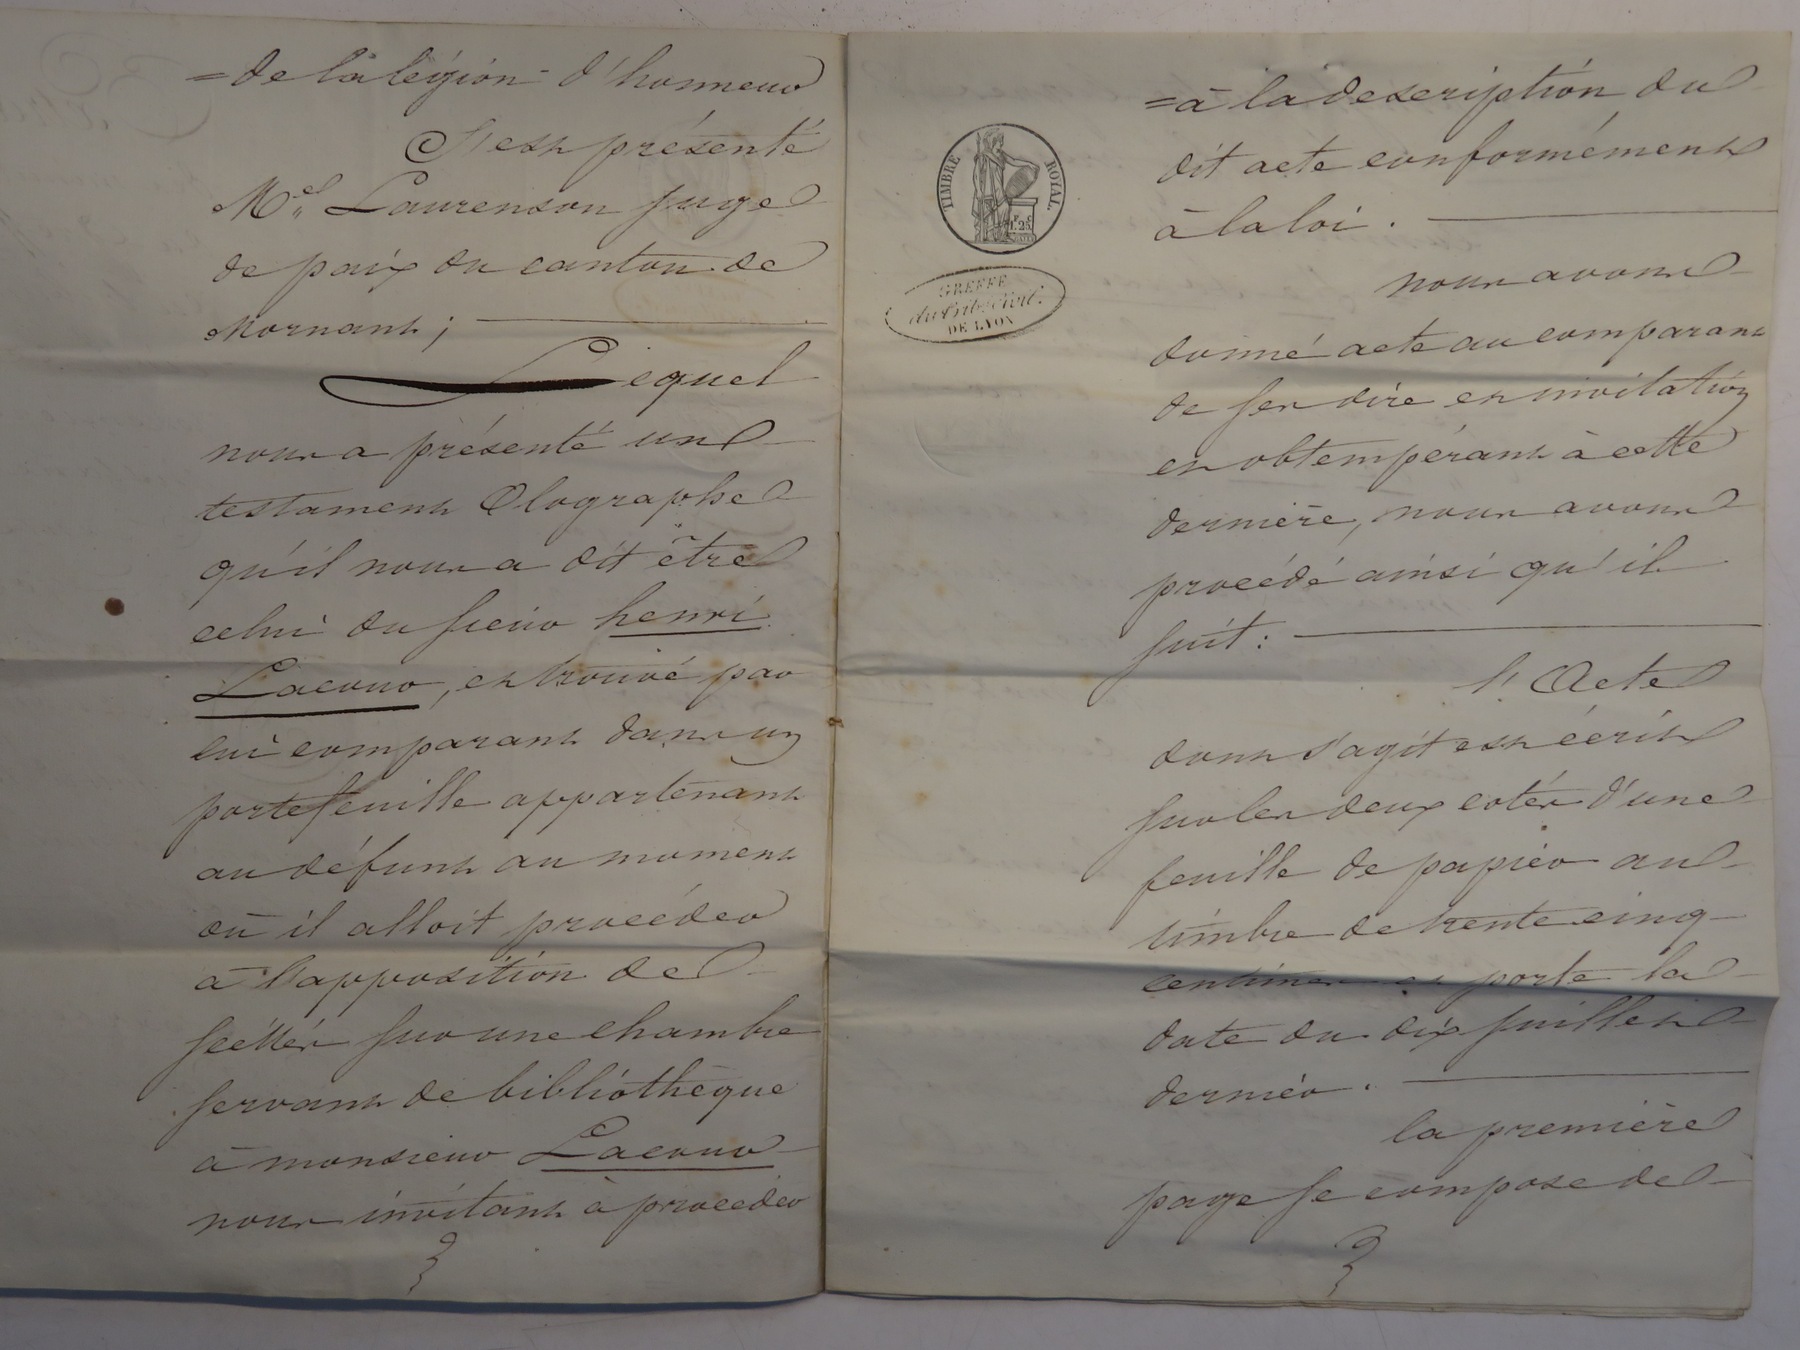 =de la légion d'honneur
S'est présenté
Mr. Laurenson juge
de paix du canton de
Mornant ;
Lequel
nous a présenté un
testament Olographe
qu'il nous a dit être
celui du sieur henri
Lacour, et trouvé par
lui comparant dans un
portefeuille appartenant
au défunt au moment
où il alloit procéder
à l'apposition de
scéllés sur une chambre
servant de bibliothèque
à monsieur Lacour
nous invitant à procéder
=à la description du
dit acte conformément
à la loi .
nous avons
donné acte au comparant
de ses dire et invitation
et obtempérant à cette
dernière, nous avons
procédé ainsi qu'il
suit :
l'Acte
dont s'agit est écrit
sur les deux cotés d'une
feuille de papier au
timbre de trente cinq
centimes et porte la
date du dix juillet
dernier .
la première
page se compose de
TIMBRE ROYAL.
1 F. 25 C.
GREFFE
du Trib. Civil.
DE LYON